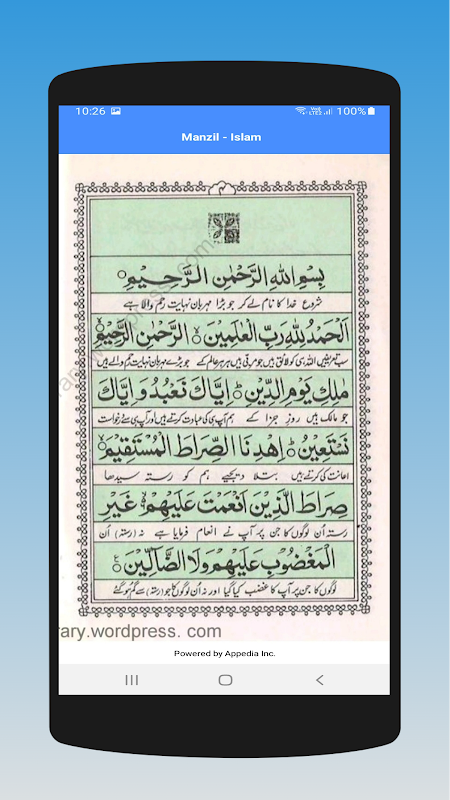 10:26 100%
Manzil - Islam
۲
بِسْمِ اللهِ الرَّحْمٰنِ الرَّحِيْمِ
شروع خدا کا نام لے کر جو بڑا مہربان نہایت رحم والا ہے
اَلْحَمْدُ لِلّٰهِ رَبِّ الْعٰلَمِيْنَ الرَّحْمٰنِ الرَّحِيْمِ
سب تعریفیں اللہ ہی کو لائق ہیں جو مربی ہیں ہر ہر عالم کے جو بڑے مہربان نہایت رحم والے ہیں
مٰلِكِ يَوْمِ الدِّيْنِ اِيَّاكَ نَعْبُدُ وَاِيَّاكَ
جو مالک ہیں روزِ جزا کے ہم آپ ہی کی عبادت کرتے ہیں اور آپ ہی سے درخواست
نَسْتَعِيْنُ اِهْدِنَا الصِّرَاطَ الْمُسْتَقِيْمَ
اعانت کی کرتے ہیں بتلا دیجیے ہم کو رستہ سیدھا
صِرَاطَ الَّذِيْنَ اَنْعَمْتَ عَلَيْهِمْ غَيْرِ
رستہ اُن لوگوں کا جن پر آپ نے انعام فرمایا ہے نہ (رستہ) اُن
الْمَغْضُوْبِ عَلَيْهِمْ وَلَا الضَّآلِّيْنَ
لوگوں کا جن پر آپ کا غضب کیا گیا اور نہ اُن لوگوں کا جو (رستہ) سے گم ہو گئے
rary.wordpress. com
Powered by Appedia Inc.